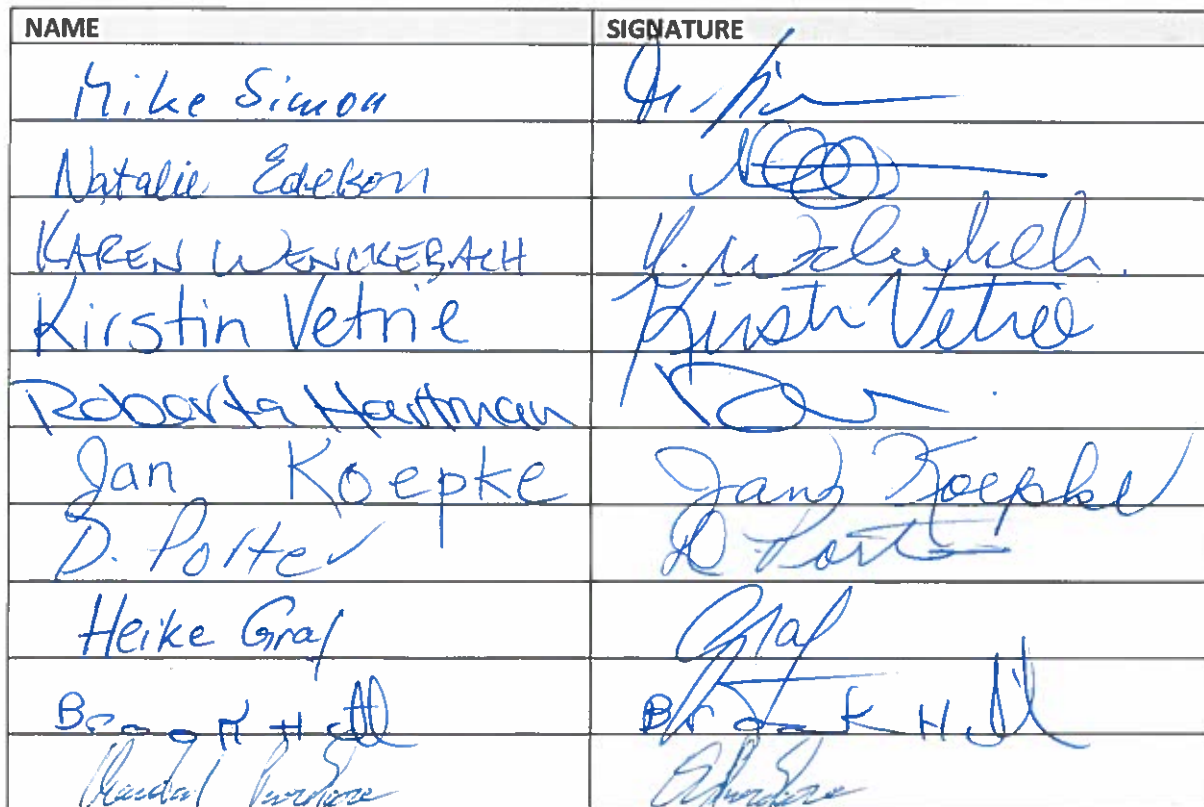 NAME SIGNATURE
Mike Simon
Natalie Edelson
KAREN WENCKEBACH
Kirstin Vetrie Kirstin Vetrie
Roberta Hartman
Jan Koepke Jan Koepke
D. Porter D Porter
Heike Graf Graf
Brook H Brook H